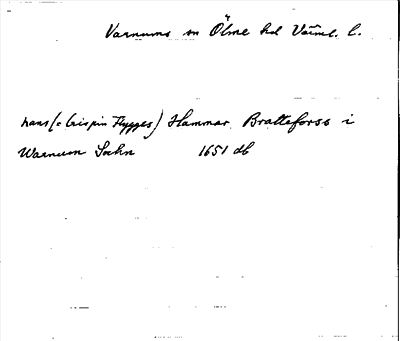 Varnums sn Ölme hd Värml. l.
hans (: Crispin Flygges) Hammar Bratteforss i
Warnum Sochn 1651 db